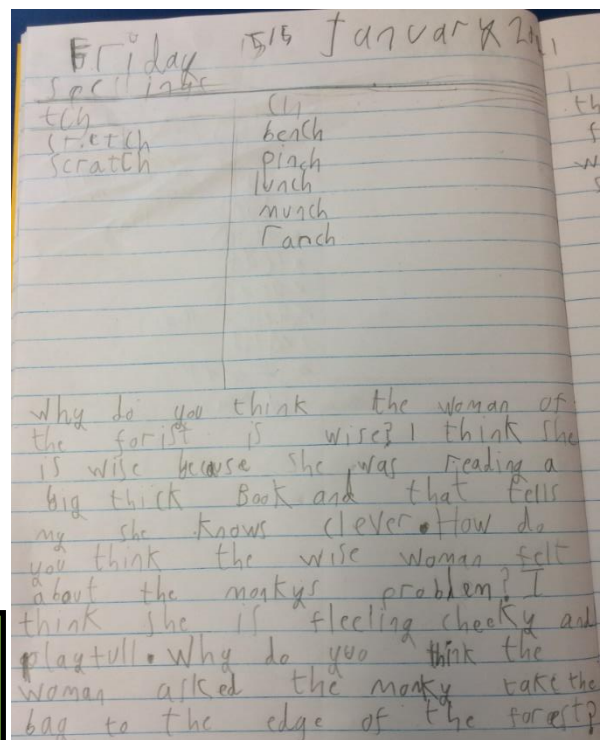 Friday 15 January 2021
Spellings
tch ch
stretch bench
scratch pinch
lunch
munch
ranch
Why do you think the woman of
the forist is wise? I think she
is wise because she was reading a
big thick Book and that tells
my she knows clever. How do
you think the wise woman felt
about the monkys problem? I
think she is fleeling cheeky and
playfull. Why do yuo think the
woman asked the monky take the
bag to the edge of the forest?